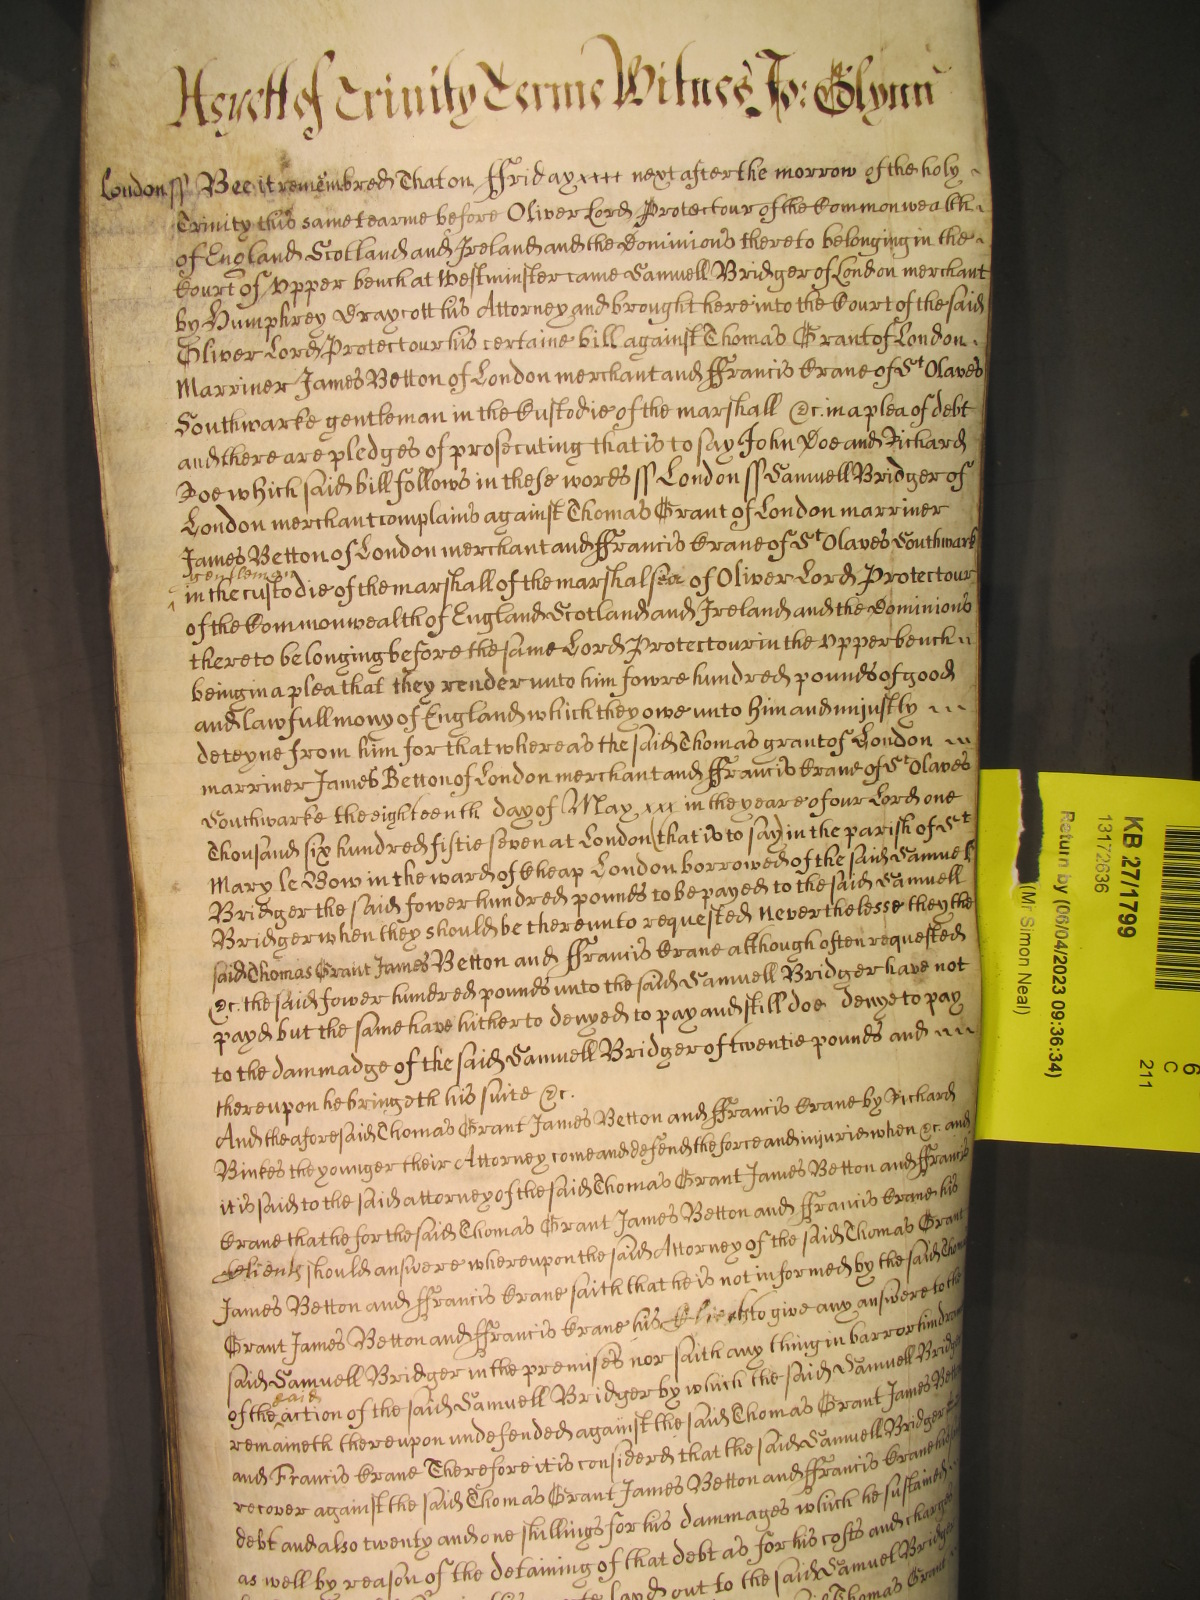 As yett of Trinity Terme Witnes Jo: Glynn
London ss Bee it remembred That on ffriday xxxx next after the morrow of the holy
Trinity this same tearme before Oliver Lord Protectour of the Commonwealth
of England Scotland and Ireland and the Dominions thereto belonging in the
Court of Upper bench at Westminster came Samuell Bridger of London merchant
by Humphrey Draycott his Attorney and brought here into the Court of the said
Oliver Lord Protectour his certaine bill against Thomas Grant of London
Marriner James Betton of London merchant and ffrancis Crane of St Olaves
Southwarke gentleman in the Custodie of the marshall &c. in a plea of debt
and there are pledges of prosecuting that is to say John Doe and Richard
Roe which said bill follows in these words ss London ss Samuell Bridger of
London merchant complains against Thomas Grant of London marriner
James Betton of London merchant and ffrancis Crane of St Olaves Southwark
gentleman
in the custodie of the marshall of the marshalsea of Oliver Lord Protectour
of the Commonwealth of England Scotland and Ireland and the Dominions
thereto belonging before the same Lord Protectour in the Upper bench
being in a plea that they render unto him fowre hundred pounds of good
and lawfull mony of England which they owe unto him and unjustly
deteyne from him for that whereas the said Thomas grant of London
marriner James Betton of London merchant and ffrancis Crane of St Olaves
Southwarke the eighteenth day of May xxx in the yeare of our Lord one
Thousand six hundred fiftie seven at London (that is to say) in the parish of St
Mary le Bow in the ward of Cheap London borrowed of the said Samuell
Bridger the said fower hundred pounds to be payed to the said Samuell
Bridger when they should be thereunto requested Neverthelesse they the
said Thomas Grant James Betton and ffrancis Crane although often requested
&c. the said fower hundred pounds unto the said Samuell Bridger have not
payd but the same have hitherto denyed to pay and still doe denye to pay
to the dammadge of the said Samuell Bridger of twentie pounds and
thereupon he bringeth his suite &c.
And the aforesaid Thomas Grant James Betton and ffrancis Crane by Richard
Binkes the younger their Attorney come and defend the force and injurie when &c. and
it is said to the said attorney of the said Thomas Grant James Betton and ffrancis
Crane that he for the said Thomas Grant James Betton and ffrancis Crane his
Clients should answere whereupon the said Attorney of the said Thomas Grant
James Betton and ffrancis Crane saith that he is not informed by the said Thomas
Grant James Betton and ffrancis Crane his Clients to give any answere to the
said Samuell Bridger in the premises nor saith any thing in barr or hindrance
said
of the action of the said Samuell Bridger by which the said Samuell Bridger
remaineth thereupon undefended against the said Thomas Grant James Betton
and Francis Crane Therefore it is considered that the said Samuell Bridger
recover against the said Thomas Grant James Betton and ffrancis Crane his
debt and also twenty and one shillings for his dammages which he sustained
as well by reason of the detaining of that debt as for his costs and charges
layd out to the said Samuel Bridger
Thomas Grant
KB 27/1799
13172636
Return by (06/04/2023 09:36:34)
(Mr Simon Neal)
6
C
211